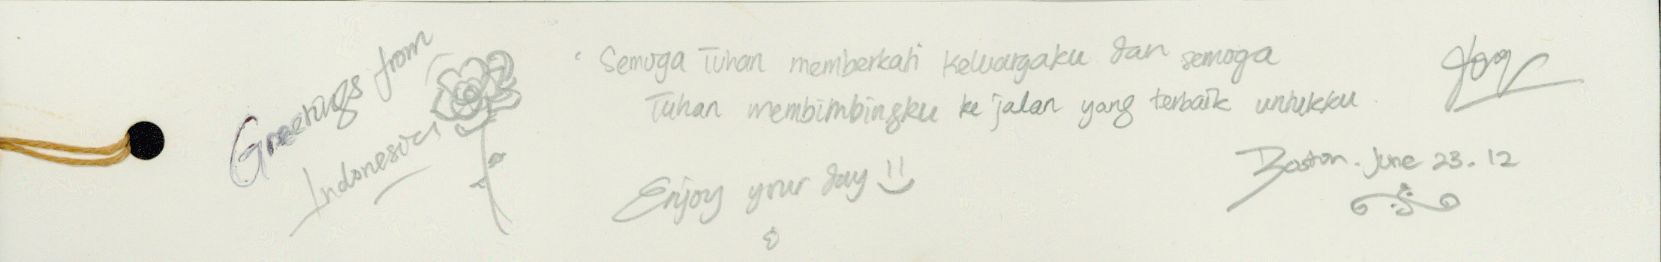 Greetings from
Indonesia
Semoga Tuhan memberkati keluargaku dan semoga
Tuhan membimbingku ke jalan yang terbaik untukku.
Enjoy your day
Boston. June 23. 12